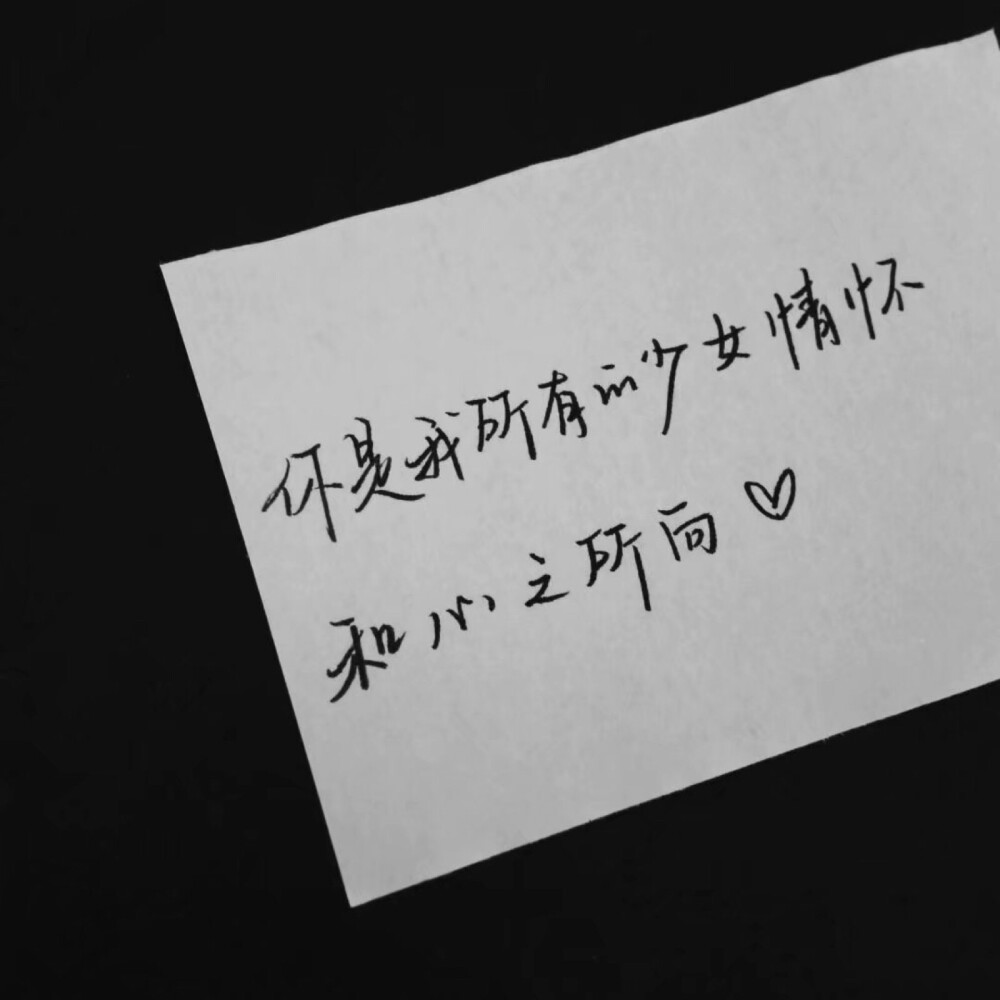 你是我所有的少女情怀
和心之所向♡